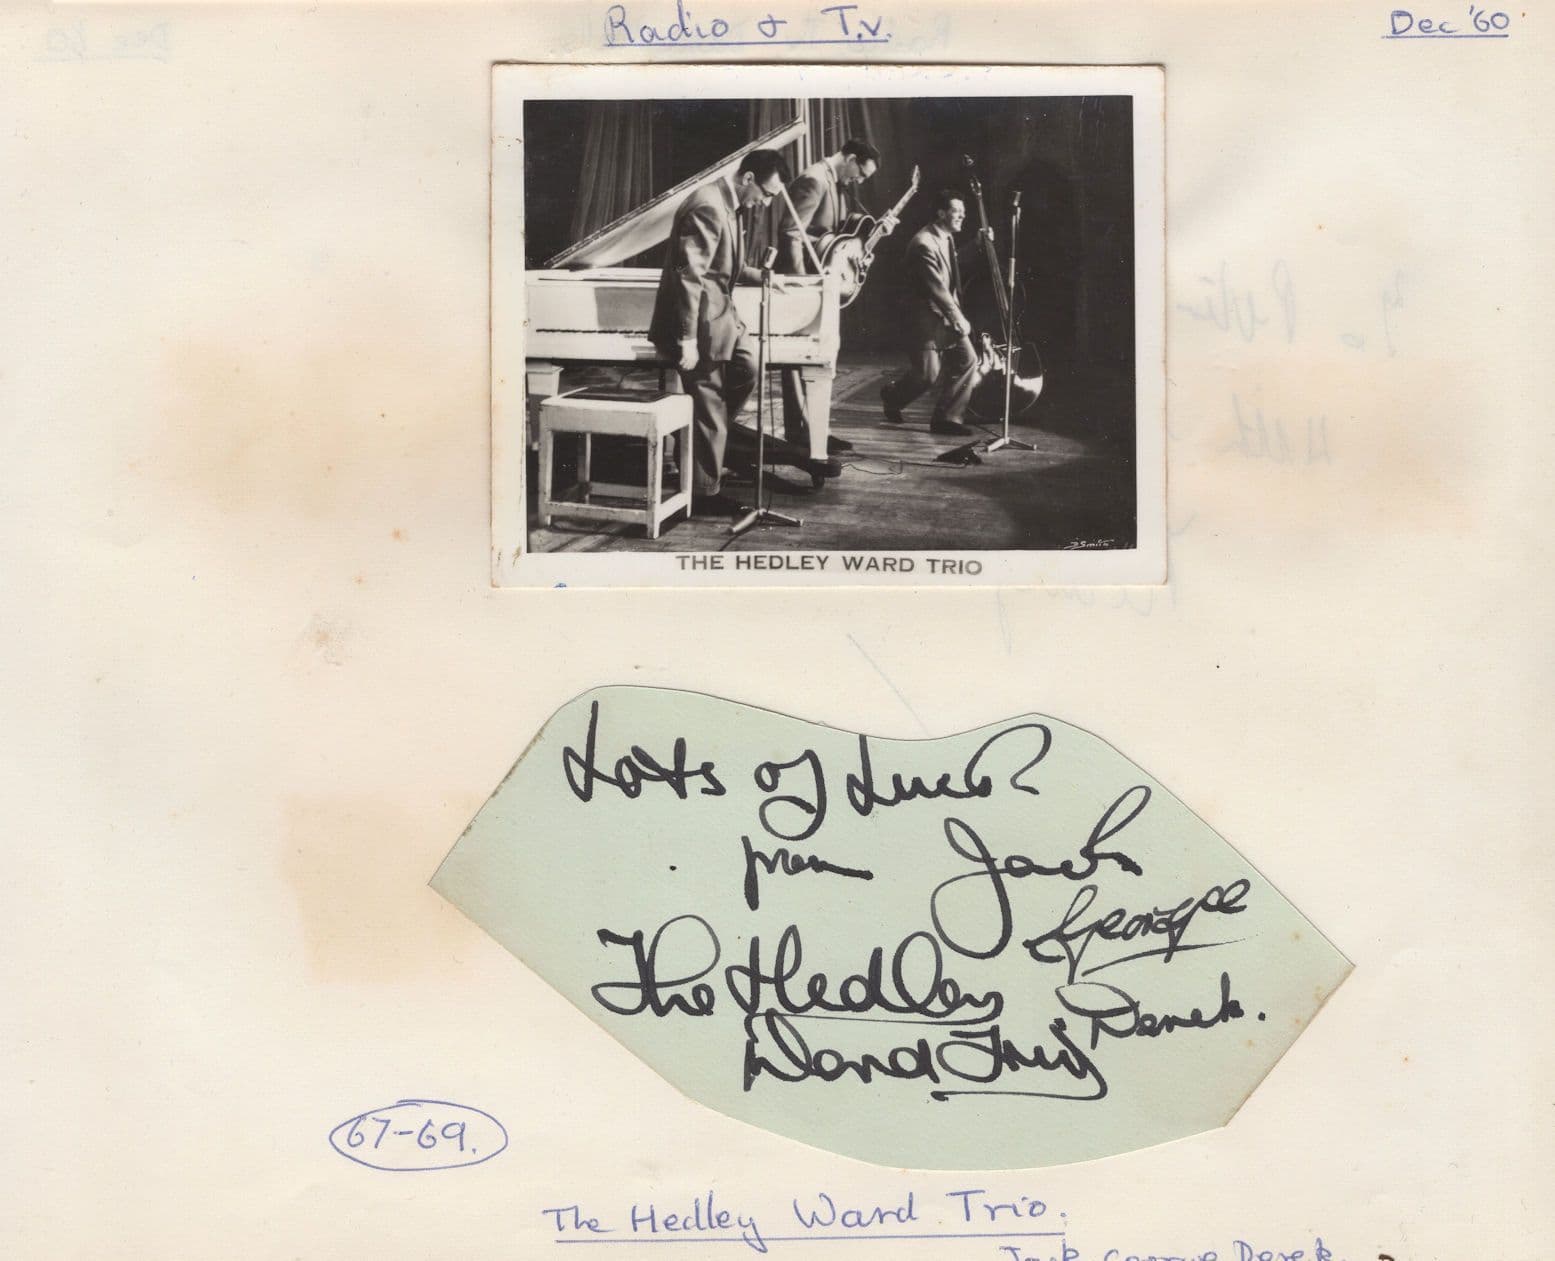 Radio & T.V.
Dec '60
Smith
THE HEDLEY WARD TRIO
Lots of Luck
from Jack
George
The Hedley
Derek.
Ward Trio
67-69.
The Hedley Ward Trio.
Jack George Derek